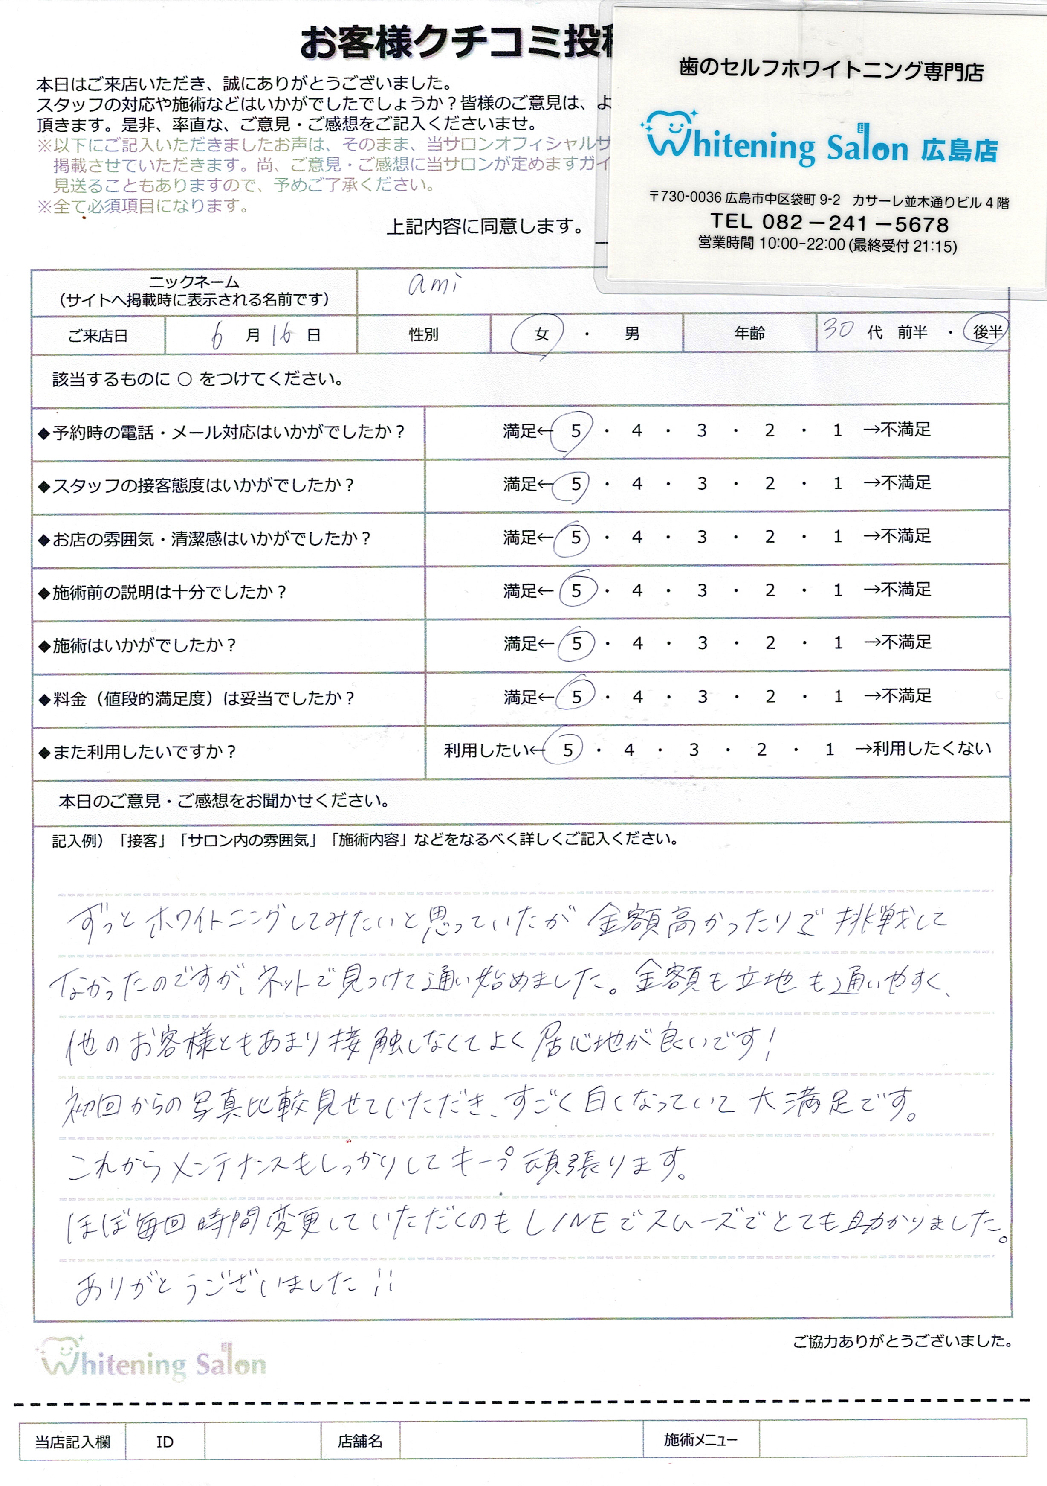 お客様クチコミ投稿
本日はご来店いただき、誠にありがとうございました。
スタッフの対応や施術などはいかがでしたでしょうか?皆様のご意見は、よ
頂きます。是非、率直な、ご意見・ご感想をご記入くださいませ。
※以下にご記入いただきましたお声は、そのまま、当サロンオフィシャルサ
掲載させていただきます。尚、ご意見・ご感想に当サロンが定めますガイ
見送ることもありますので、予めご了承ください。
※全て必須項目になります。
上記内容に同意します。
歯のセルフホワイトニング専門店
Whitening Salon 広島店
〒730-0036 広島市中区袋町 9-2 カサーレ並木通りビル 4 階
TEL 082-241-5678
営業時間 10:00-22:00 (最終受付 21:15)
ニックネーム
(サイトへ掲載時に表示される名前です)
ami
ご来店日 6 月 16 日 性別 女 ・ 男 年齢 30 代 前半 ・ 後半
該当するものに ○ をつけてください。
◆予約時の電話・メール対応はいかがでしたか? 満足← 5 ・ 4 ・ 3 ・ 2 ・ 1 →不満足
◆スタッフの接客態度はいかがでしたか? 満足← 5 ・ 4 ・ 3 ・ 2 ・ 1 →不満足
◆お店の雰囲気・清潔感はいかがでしたか? 満足← 5 ・ 4 ・ 3 ・ 2 ・ 1 →不満足
◆施術前の説明は十分でしたか? 満足← 5 ・ 4 ・ 3 ・ 2 ・ 1 →不満足
◆施術はいかがでしたか? 満足← 5 ・ 4 ・ 3 ・ 2 ・ 1 →不満足
◆料金(値段的満足度)は妥当でしたか? 満足← 5 ・ 4 ・ 3 ・ 2 ・ 1 →不満足
◆また利用したいですか? 利用したい← 5 ・ 4 ・ 3 ・ 2 ・ 1 →利用したくない
本日のご意見・ご感想をお聞かせください。
記入例)「接客」「サロン内の雰囲気」「施術内容」などをなるべく詳しくご記入ください。
ずっとホワイトニングしてみたいと思っていたが 金額高かったりで 挑戦して
なかったのですが、ネットで見つけて通い始めました。金額も立地も通いやすく、
他のお客様ともあまり接触しなくてよく居心地が良いです!
初回からの写真比較見せていただき、すごく白くなっていて大満足です。
これからメンテナンスもしっかりしてキープ頑張ります。
ほぼ毎回時間変更していただくのもLINEでスムーズでとても助かりました。
ありがとうございました!!
Whitening Salon
ご協力ありがとうございました。
当店記入欄 ID 店舗名 施術メニュー